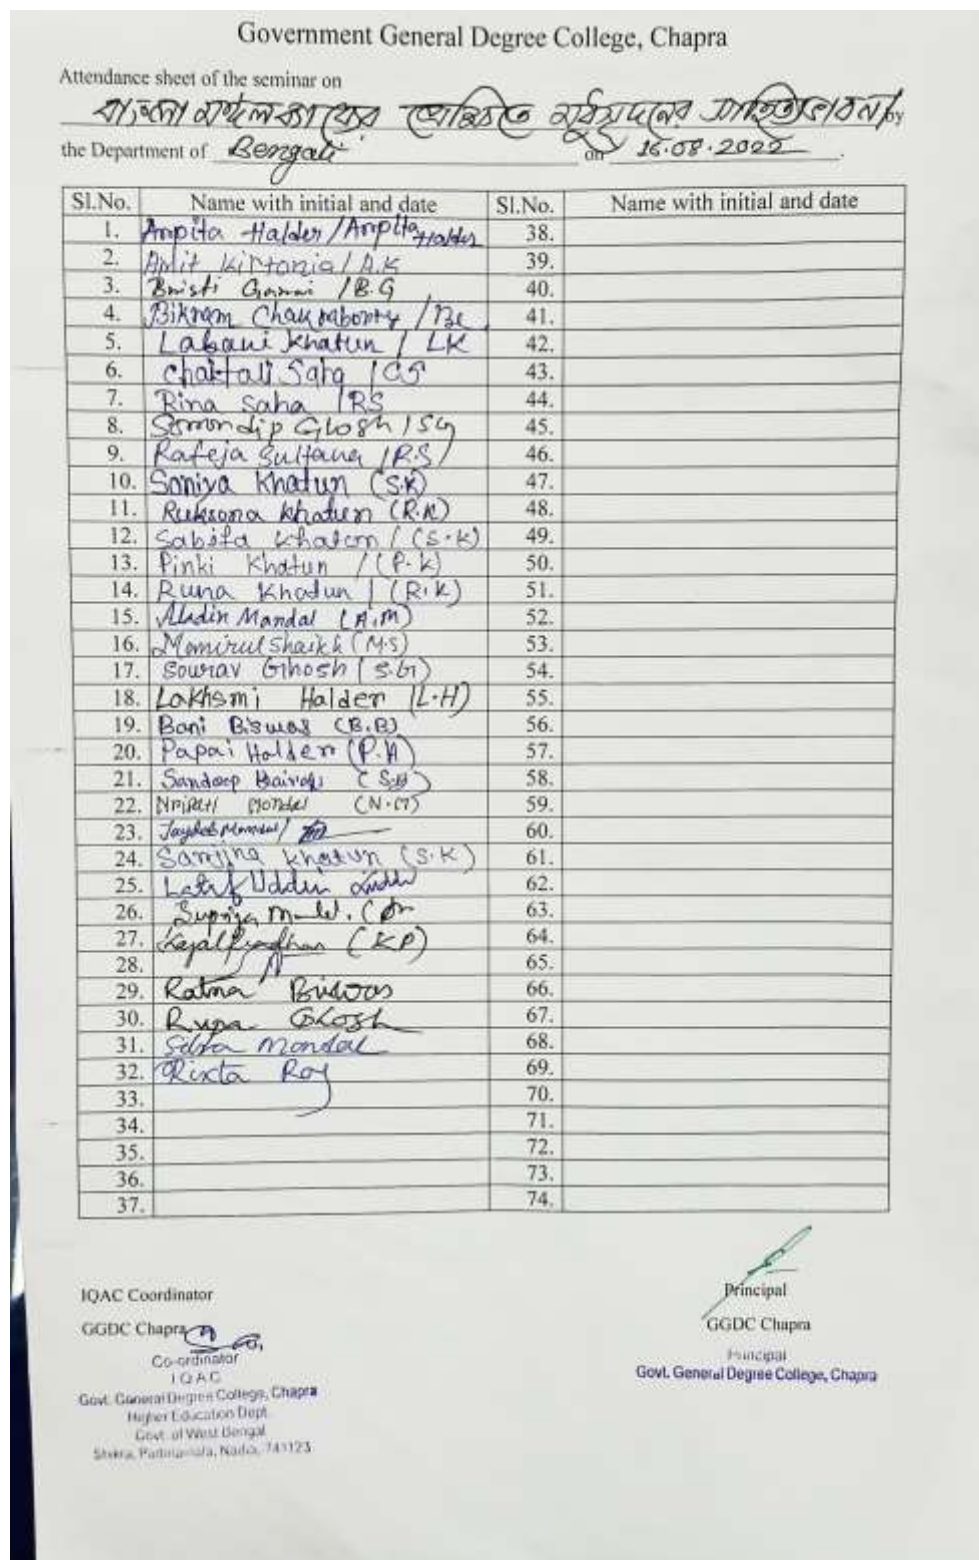 Government General Degree College, Chapra
Attendance sheet of the seminar on
বাংলা মঙ্গলকাব্যের প্রেক্ষিতে মধুসূদনের সাহিত্যভাবনা by
the Department of Bengali on 16.08.2022.
Sl.No. Name with initial and date Sl.No. Name with initial and date
1. Arpita Halder / Arpita Halder 38.
2. Amit Kirtania / A.K 39.
3. Bristi / B.G 40.
4. Bikram Chakraborty / 41.
5. Labani Khatun / LK 42.
6. Chaitali Saha / CS 43.
7. Rina Saha / RS 44.
8. Somondip Ghosh / SG 45.
9. Rafeja Sultana / R.S 46.
10. Soniya Khatun (S.K) 47.
11. Ruksona Khatun (R.K) 48.
12. Sabita Khatun / (S.K) 49.
13. Pinki Khatun / (P.K) 50.
14. Runa Khatun / (R.K) 51.
15. Aladin Mandal (A.M) 52.
16. Momirul Shaikh (M.S) 53.
17. Sourav Ghosh (S.G) 54.
18. Lakhsmi Halder (L.H) 55.
19. Bani Biswas (B.B) 56.
20. Papai Halder (P.H) 57.
21. Sandeep Bairagi (S.B) 58.
22. Nripati Mondal (N.M) 59.
23. Jaydeb Mondal / 60.
24. Sanjina Khatun (S.K) 61.
25. Latif Uddin 62.
26. Supriya 63.
27. Kajal Pradhan (KP) 64.
28. 65.
29. Ratna Biswas 66.
30. Rupa Ghosh 67.
31. Mondal 68.
32. Rikta Roy 69.
33. 70.
34. 71.
35. 72.
36. 73.
37. 74.
IQAC Coordinator
GGDC Chapra
Co-ordinator
IQAC
Govt. General Degree College, Chapra
Higher Education Dept.
Govt. of West Bengal
Shikra, Nadia, 741123
Principal
GGDC Chapra
Principal
Govt. General Degree College, Chapra